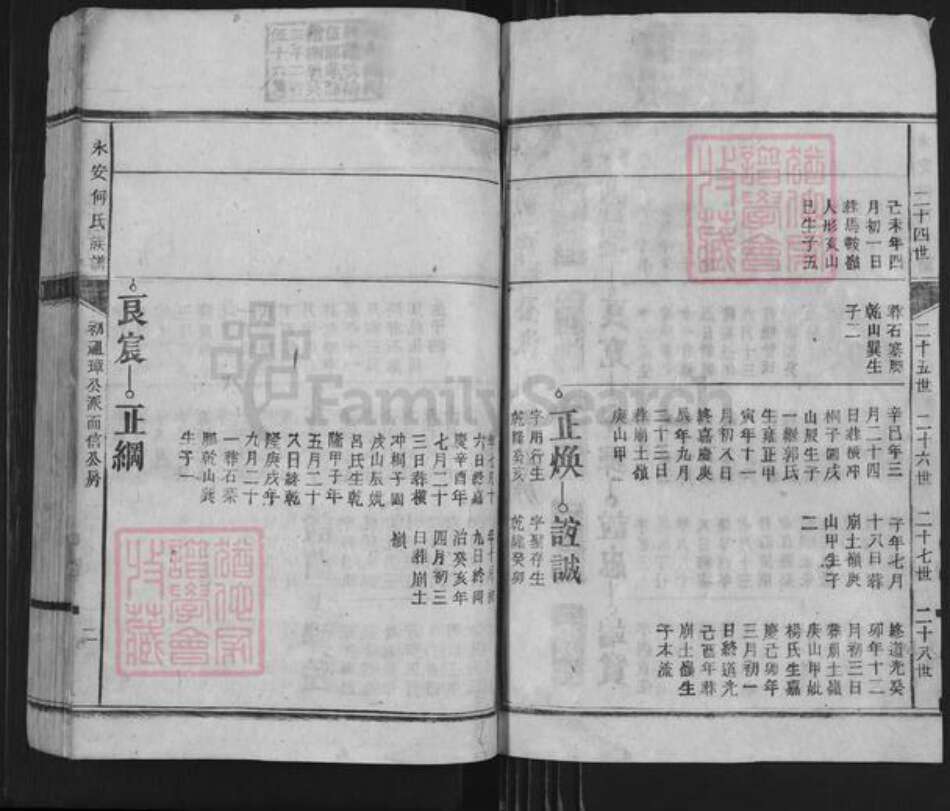 二十四世
己未年四
月初一日
葬馬鞍嶺
人形亥山
巳生子五
二十五世
葬石寨㘭
乾山巽生
子二
二十六世
辛巳年三
月二十四
日葬橫冲
桐子園戌
山辰生子
一繼郭氏
生雍正甲
寅年十一
月初八日
終嘉慶庚
辰年九月
二十三日
葬崩土嶺
庚山甲
正煥
字用行生
乾隆癸亥
二十七世
子年七月
十八日葬
崩土嶺庚
山甲生子
二
誼誠
字聖存生
乾隆癸卯
二十八世
終道光癸
卯年十二
月初三日
葬崩土嶺
庚山甲妣
楊氏生嘉
慶己卯年
三月初一
日終道光
己酉年葬
崩土嶺生
子木流
年七月十
六日終嘉
慶辛酉年
七月二十
三日葬橫
冲桐子園
戌山辰妣
呂氏生乾
隆甲子年
五月二十
八日終乾
隆庚戌年
九月二十
一葬石寨
㘭乾山巽
生子一
九日終同
治癸亥年
四月初三
日葬崩土
嶺
良宸
正綱
永安何氏族譜
初通璋公派面信公房
二
FamilySearch